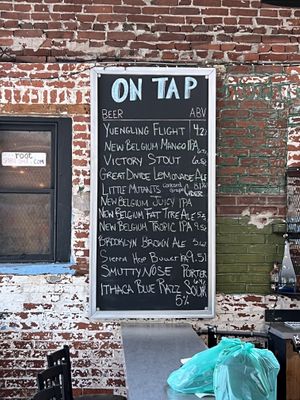 ON TAP
BEER ABV
YUENGLING FLIGHT 4.2
NEW BELGIUM MANGO IPA
VICTORY STOUT
GREAT DIVIDE LEMONADE ALE
LITTLE MUTANTS CONCORD GRAPE CIDER 8.1%
NEW BELGIUM JUICY IPA
NEW BELGIUM FAT TIRE ALE 5.2
NEW BELGIUM TROPIC IPA 9.5
BROOKLYN BROWN ALE 5.6
SIERRA HOP 9.5
SMUTTYNOSE PORTER
ITHACA BLUE RAZZ SOUR
5%
root